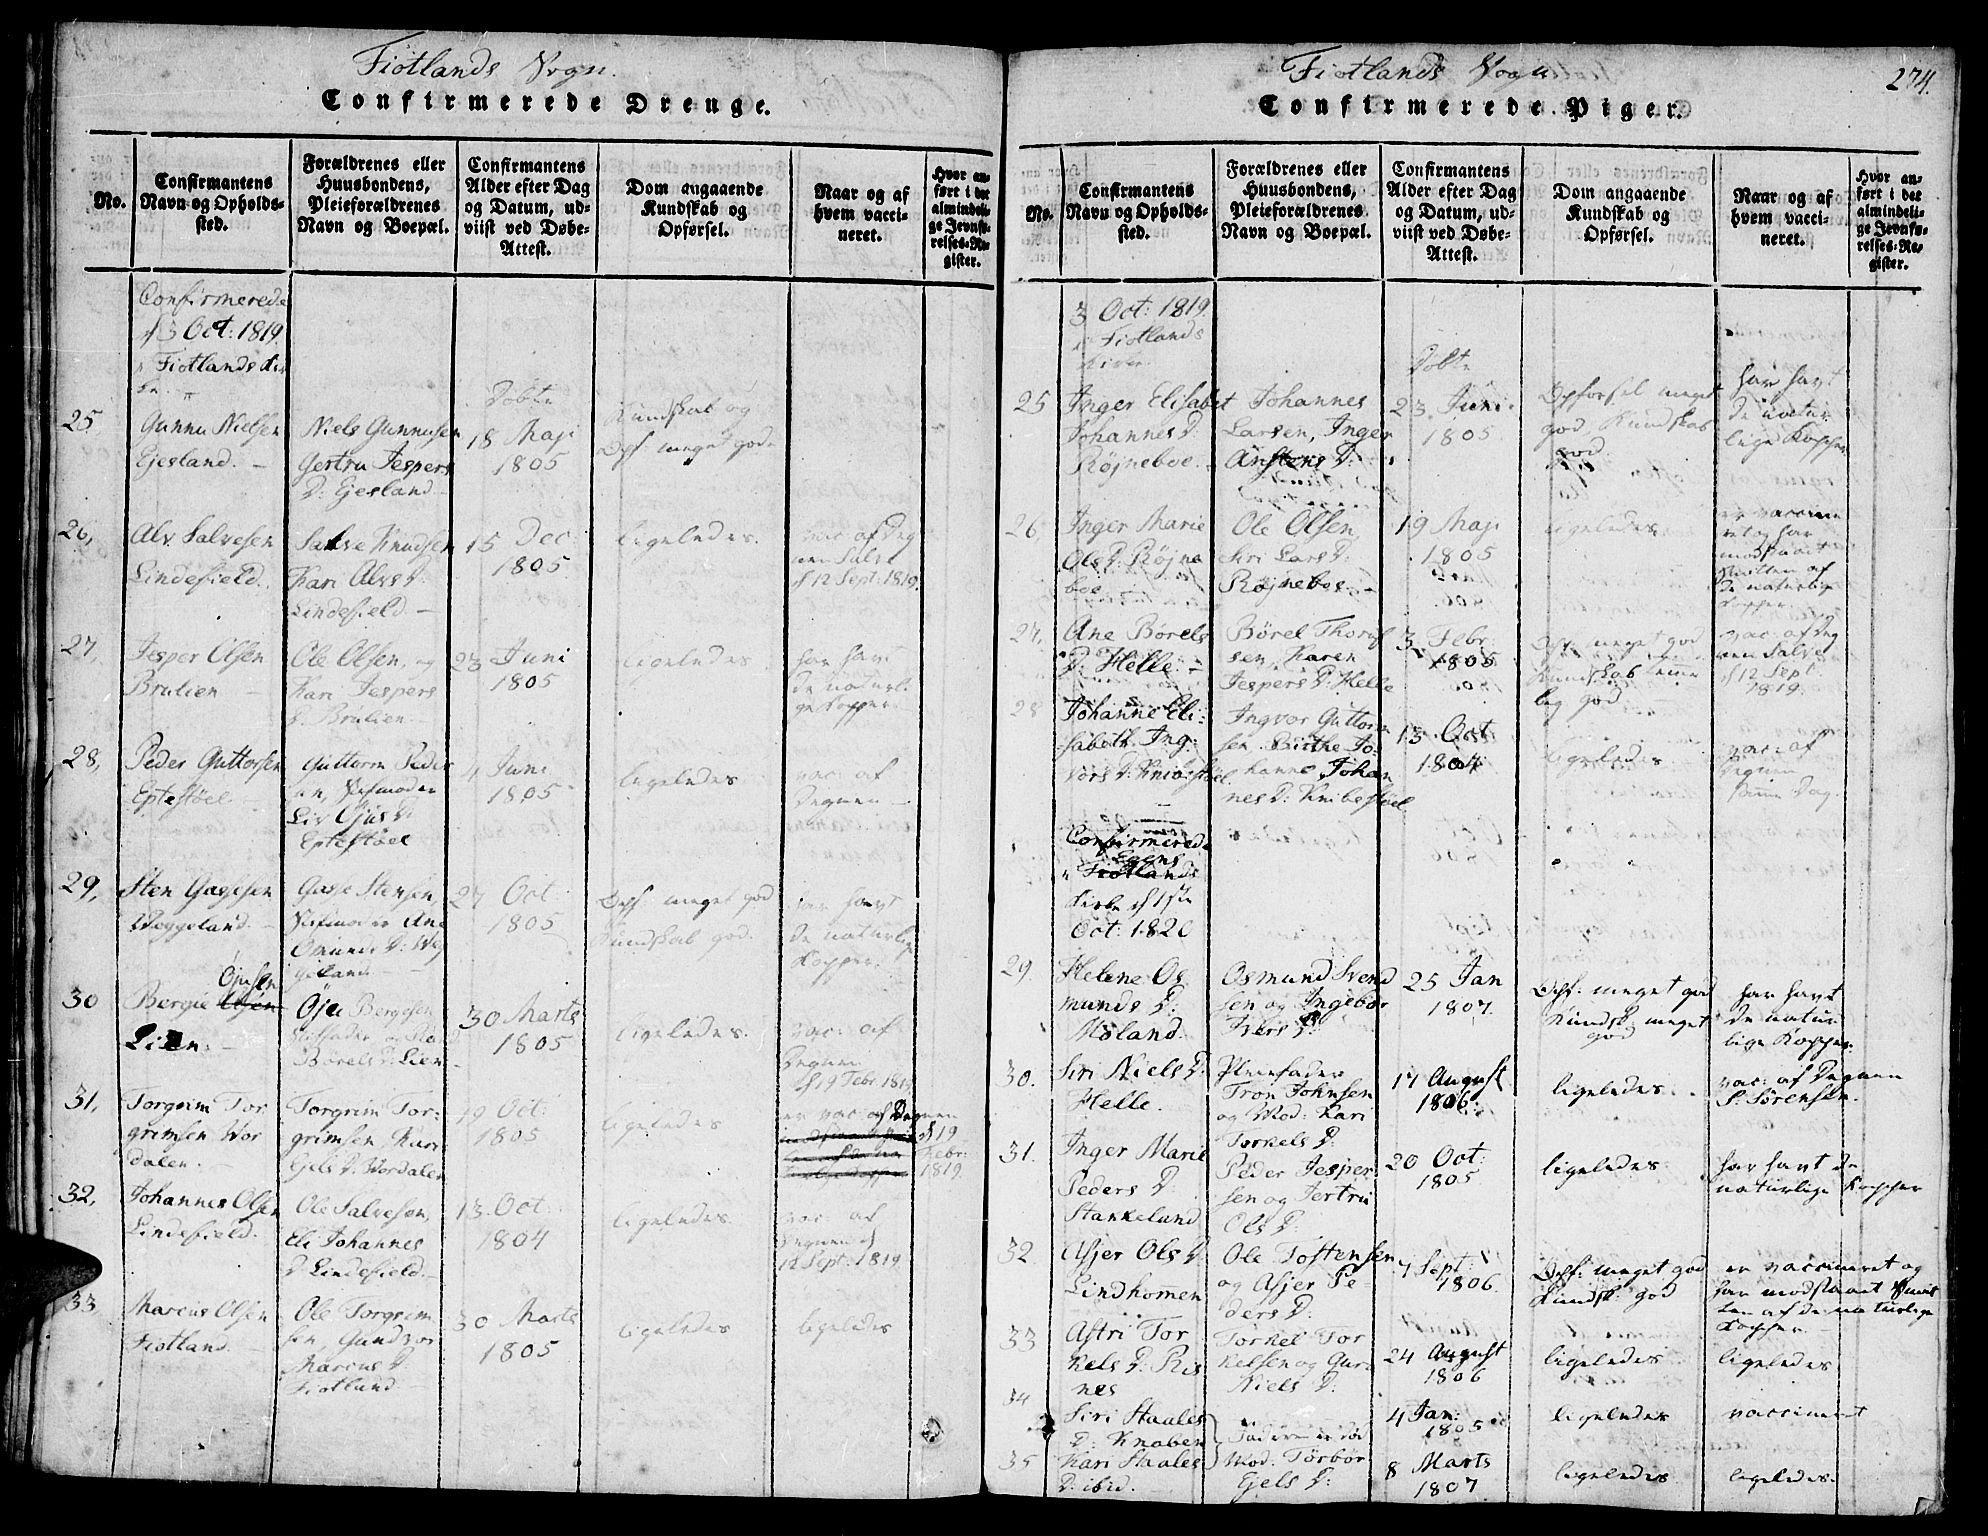 Fiotlands Sogn.
Confirmerede Drenge.
No.
Confirmantens
Navn og Opholds-
sted.
Forældrenes eller
Huusbondens,
Pleieforældrenes
Navn og Boepæl.
Confirmantens
Alder efter Dag
og Datum, ud-
viist ved Døbe-
Attest.
Dom angaaende
Kundskab og
Opførsel.
Naar og af
hvem vacci-
neret.
Hvor an-
ført i det
almindeli-
ge Jevnfø-
relses-Re-
gister.
Confirmerede
d 3 Oct: 1819
i Fiotlands Kir
ke.
25
Gunnu Nielsen
Ejesland. -
Niels Gunnusen
Gertru Jespers
D: Ejesland -
Døbte
18 Maji
1805
Kundskab og
Opf: meget gode
26,
Alv Salvesen
Lindefield.
Salve Knudsen
Kari Alvs D:
Lindefield -
15 Dec:
1805
ligeledes.
vac: af Deg
nen Salve
d 12 Sept: 1819.
27,
Jesper Olsen
Brulien -
Ole Olsen, og
Kari Jespers
D. Brulien
23 Juni
1805
ligeledes
har hav
de naturli
ge Kopper.
28,
Peder Guttorsen
Eptestøel -
Guttorm Peder
sen, Stifmoder
Liv Ojus D:
Eptestøel
4 Juni
1805
ligeledes
vac: af
Degnen
29,
Sten Gasesen
Weggeland. -
Gase Stensen,
Stifmoder Ane
Omunds D: We
geland
27 Oct:
1805
Opf: meget god
Kundskab god.
har havt
de naturlige
Kopper.
30
Ojusen
Bergie Olsen
Lien. -
Oju Bergesen
Stiffader og
Børels D: Lien
30 Marts
1805
ligeledes.
vac: af
Degnen
d 19 Febr. 1819
31,
Torgrim Tor
grimsen Wor
dalen. -
Torgrim Tor-
grimsen, Kari
Ejels D. Wordalen
19 Oct:
1805
ligeledes
er vac: af Degnen
d 19
Febr:
1819.
32,
Johannes Olsen
Lindefield.
Ole Salvesen,
Eli Johannes
D Lindefield.
13 Oct:
1804
ligeledes
vac: af
Degnen d
12 Sept: 1819
33
Marcus Olsen
Fiotland. -
Ole Torgrim
sen Gundvor
Marcus D:
Fiotland
30 Marts
1805
ligeledes
ligeledes
Fiotlands Sogn
274.
Confirmerede Piger.
No.
Confirmantens
Navn og Opholds-
sted.
Forældrenes eller
Huusbondens,
Pleieforældrenes
Navn og Boepæl.
Confirmantens
Alder efter Dag
og Datum, ud-
viist ved Døbe-
Attest.
Dom angaaende
Kundskab og
Opførsel.
Naar og af
hvem vacci-
neret.
Hvor an-
ført i det
almindeli-
ge Jevnfø-
relses-Re-
gister.
3 Oct: 1819.
i Fiotlands
Kirke.
25
Inger Elisabet
Johannes D:
Røjneboe.
Johannes
Larsen, Inger
Anstens D:
Døbte
23. Juni
1805.
Opforsel meget
god Kundskab
god
har havt
de natur
lige Kopper
26
Inger Marie
Ols D: Røjne
boe
Ole Olsen
Siri Lars D:
Røjneboe. -
19 Maji
1805
ligeledes
er vaccine
ret og har
modstaaet
Smitten af
de naturlige
Kopper.
27,
Ane Børels
D: Helle -
Børel Thoris
sen, Karen
Jespers D: Helle
3 Febr:
1805
Opf: meget god
Kundskab teme
lig god
vac: af Deg
nen Salve
d 12 Sept.
1819.
28
Johanne Eli-
sabeth Ing-
vors D: Knibestøel
Ingvor Guttorm
sen Birthe Jo-
hanne Johan
nes D: Knibestøel
13 Oct
1804
ligeledes
vac: af
Degnen
samme Dag.
Confirmerede
Egens
i Fiotlands
Kirke d 1ste
Oct: 1820
29.
Helene Os
munds D:
Moland.
Osmund Svend
sen og Ingebor
Ivers D:
25 Jan
1807.
Opf: meget god
Kundsk meget
god
har havt
de natur
lige Kopper.
30.
Siri Niels D:
Helle.
Pleiefader
Tron Johnsen
og Mod: Kari
Torkels D:
17 August
1806.
ligeledes.
vac: af Degnen
S. Sørensen.
31.
Inger Marie
Peders D:
Starkeland
Peder Jesper
sen og Jertru
Ols D:
20 Oct:
1805
ligeledes
har havt de
naturlige Kopper
32
Asjer Ols D:
Lindhomen
Ole Tostensen
og Asjer Pe-
ders D:
7 Sept:
1806.
Opf: meget god
Kundsk: god
er vaccineret og
har modstaaet Smit
ten af de naturlige
Kopper.
33
Astri Tor
kels D: Ris
nes
Torkel Tor
kelsen og Guro
Niels D:
24 August
1806
ligeledes
ligeledes
34
Siri Staales
D: Knaben
Faderen er død
Mod: Torbor
Ejels D:
4 Jan:
1805
ligeledes
vaccineret
35
Kari Staales
D: ibid.
8 Marts
1807
ligeledes
ligeledes.